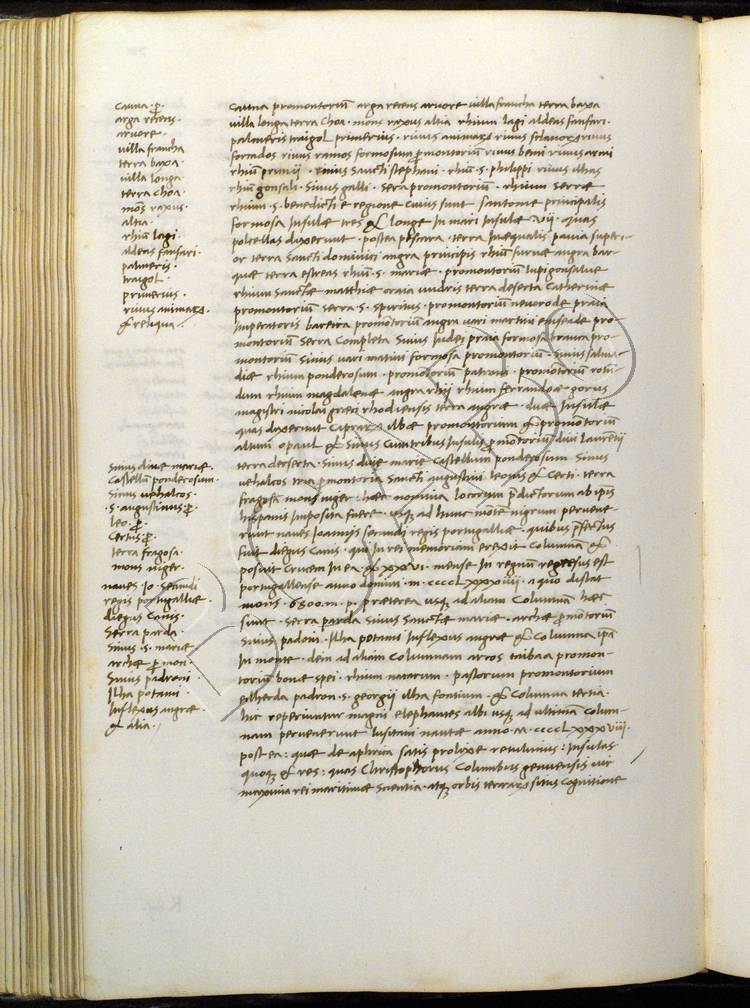 cauna .p̄.
arga recens.
arvore.
villa francha
terra baxa.
villa longa.
terra choa.
mōs raxus.
altia.
rhiū lagi.
aldeas fansari.
palmeris.
traigol.
primerius.
rivus animarꝝ.
& reliqua.
Sinus divæ mariæ.
Castellū ponderosum.
Sinus vehalcos.
S. augustinus p̄.
leo. p̄.
Certis p̄.
terra fragosa.
mons niger.
naves Io. Secundi
regis portugalliæ.
diegus Canus.
Serra parda.
Sinus .S. mariæ
archæ p̄ mon.
Sinus padroni
Ilha potami
Inflexus angræ.
& alia.
cauna promontoriū arga recens arvore villa francha terra baxa
villa longa terra choa. mons raxus altia rhium lagi aldeas fansari.
palmeris traigol primerius. rivus animarꝝ rivus sclavorꝝ rivus
forcados rivus ramos formosum p̄montorium rivus beni rivus
rhiū primii. rivus Sancti stephani. rhiū .S. philippi rivus ilhas
rhiū gonsali. Sinus galli. Serra promontorium. rhium Serræ
rhium .S. benedicti e regione cuius sunt Santome principalis
formosa Insulæ tres & longe In mari Insulæ vii. quas
polcellas dixerunt. postea pescara. terra Inæqualis pavia superi-
or terra Sancti dominici angra principis rhiū furnæ angra bar-
quæ terra estreas rhiū .S. mariæ. promontorium lupigonsalve
rhium Sanctæ matthiæ praia terra deserta Catherinæ
promontorium Serra .S. spiritus. promontoriū praia
Imperatoris barreira promōtorium angra vari martini pro-
montoriū Serra Completa Sinus Iudei praia formosa pro-
montoriū Sinus vari matini formosa promontoriū. Sinus salva-
diæ rhium ponderosum. promotoriū patroni. promotoriū rotū
dum rhium magdalenæ angra rhii rhium ferrandæ gorus
magistri nicolai græci rhodiensis terra angræ. duæ Insulæ
quas dixerunt Capras albæ promontorium & promōtoriū
altum opaul & Sinus Cum tribus Insulis p̄mōtoriū divi laurētii
terra deserta. Sinus divæ mariæ Castellum ponderosum Sinus
vehalcos tria p̄montoria Sancti augustini leonis & Certi. terra
fragosa mons niger: hæc nomina locorum p̄dictorum ab ipsis
hispanis Imposita fuere. usq; ad hunc mōtē nigrum pervene-
runt naves Ioannis Secundi regis portugalliæ. quibus p̄fectus
fuit diegus Canus. qui In rei memoriam erexit columnam &
posuit crucem In ea & xxxvi. mense In regnum regressus est
portugallense anno domini .m.ccccLxxxiiii. a quo distat
moris .6800.m.p. præterea usq; ad aliam Columnam hæc
sunt. Serra parda Sinus Sanctæ mariæ. archæ p̄mōtorium
Sinus padoni. Ilha potami Inflexus angræ & Columna ipā
In monte. dein ad aliam Columnam arcos taibaa promon-
toriū bonæ spei. rhium natarum. pastorum promontorium
padron .S. georgii ilha fontium. & Columna tertia.
huc reperiuntur magni elephantes albi usq; ad ultimam Colum-
nam pervenerunt lusitani nautæ anno .M.ccccLxxxviii.
post ea: quæ de aphrica satis prolixe retulimus: Insulas
quoq; & res: quas Christophorus Columbus genuensis vir
maxima rei maritimæ Scientia. atq; orbis terrarꝝ situs Cognitione